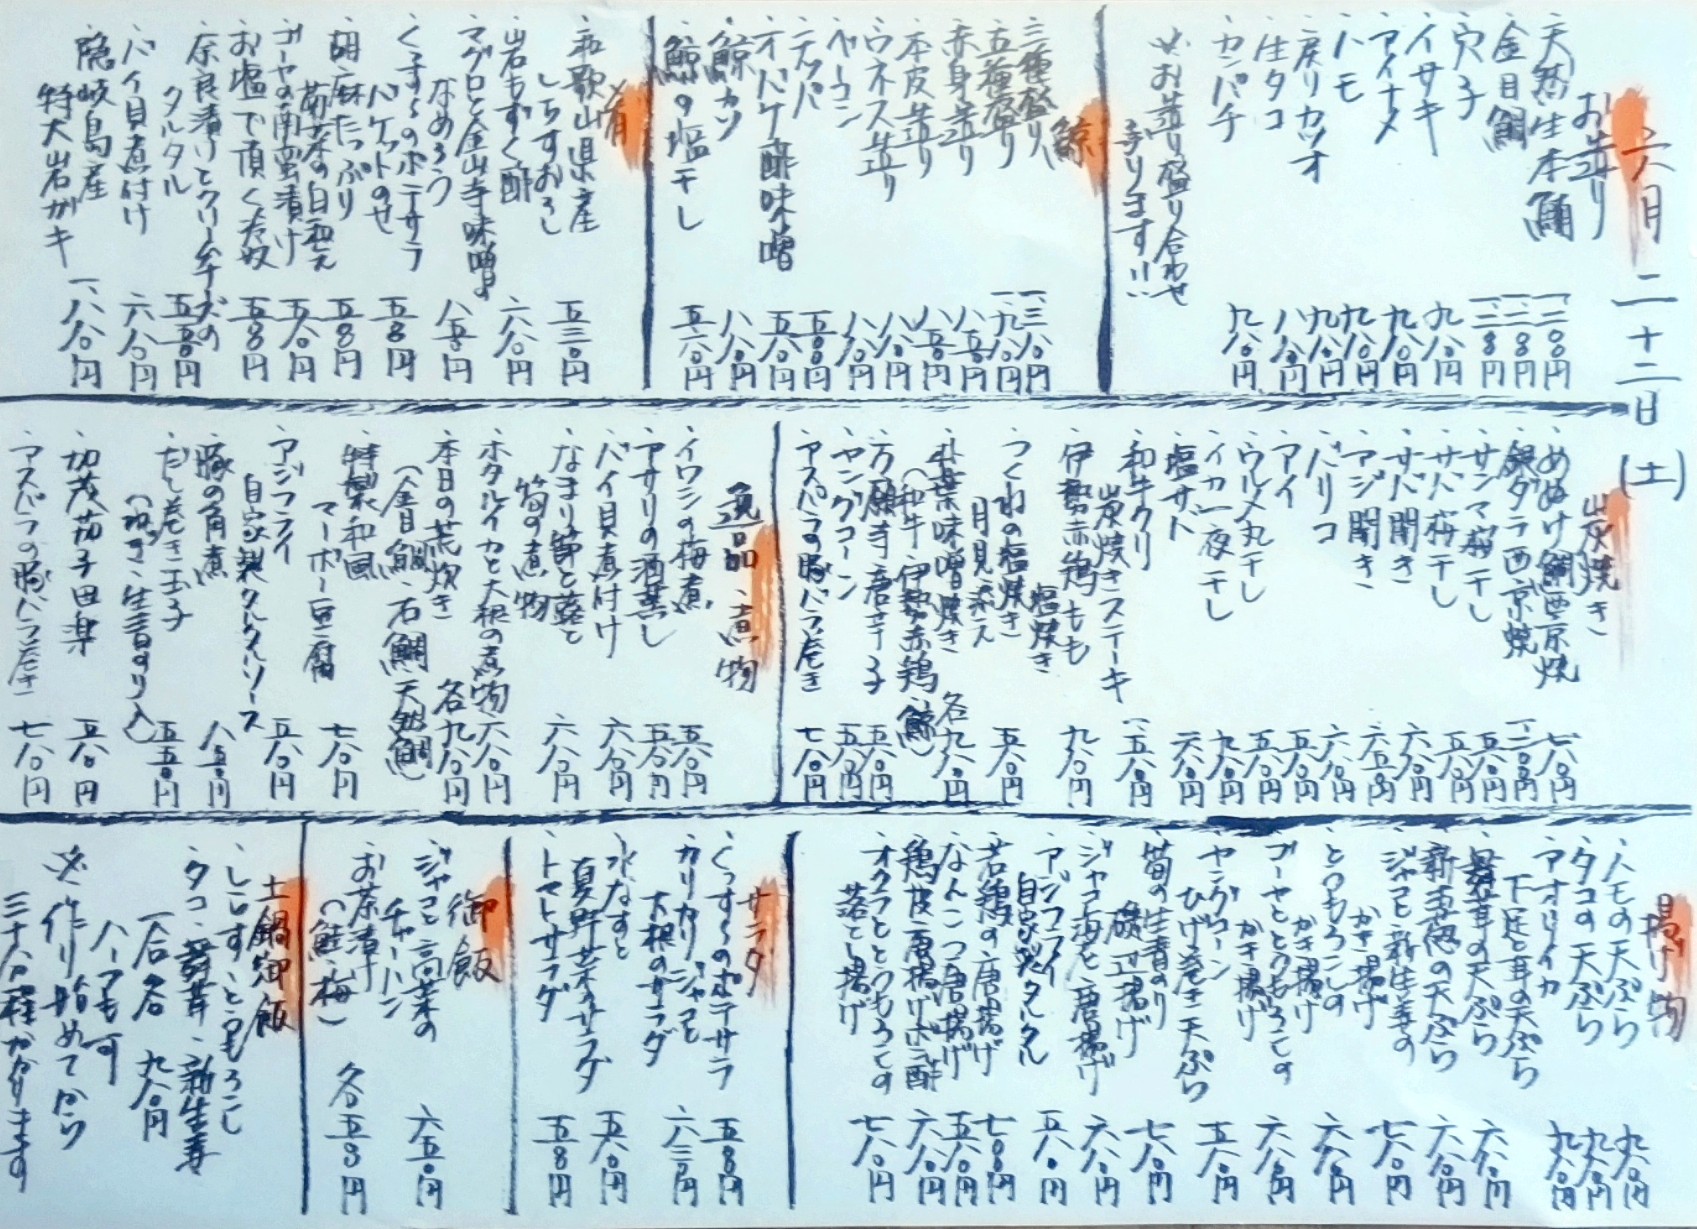 六月二十二日(土)
お造り
・天然生本鮪 一、二〇〇円
・金目鯛
・穴子
・イサキ 九八〇円
・アイナメ 九八〇円
・ハモ 九八〇円
・戻りカツオ 九八〇円
・生タコ 八八〇円
・カンパチ 九八〇円
※お造り盛り合わせ
有ります!!
鯨
・三種盛り 一、三八〇円
・五種盛り 一、九八〇円
・赤身造り 八五〇円
・本皮造り 八五〇円
・ウネス造り 八八〇円
・ベーコン 八八〇円
・テッパ 五〇〇円
・オバケ酢味噌 五八〇円
・鯨カツ 八八〇円
・鯨の塩干し 五六〇円
肴
・和歌山県産
しらすおろし 五三〇円
・岩もずく酢 六八〇円
・マグロと金山寺味噌の
なめろう 八五〇円
・くずし〜のポテサラ
バケットのせ 五八〇円
・胡麻たっぷり
菊菜の白和え 五八〇円
・ゴーヤの南蛮漬け 五八〇円
・お塩で頂く冷奴 五八〇円
・奈良漬けとクリームチーズの
タルタル 五五〇円
・バイ貝煮付け 六八〇円
・隠岐島産
特大岩ガキ 一、八八〇円
炭焼き
・めぬけ鯛西京焼 七八〇円
・銀ダラ西京焼 一、二〇〇円
・サンマ梅干し 五八〇円
・サバ梅干し 五八〇円
・サバ開き 六八〇円
・アジ開き 六五〇円
・バリコ 六八〇円
・アイ 五八〇円
・ウルメ丸干し 五八〇円
・イカ一夜干し 九八〇円
・塩サバ 六八〇円
・和牛クリ
炭焼きステーキ 一、五八〇円
・伊勢赤鶏もも
塩焼き 九八〇円
・つくねの塩焼き
月見添え 五八〇円
・朴葉味噌焼き
(和牛・伊勢赤鶏・鯨) 各九八〇円
・万願寺唐辛子 五八〇円
・ヤングコーン 五八〇円
・アスパラの豚バラ巻き 七八〇円
逸品・煮物
・イワシの梅煮 五八〇円
・アサリの酒蒸し 五八〇円
・バイ貝煮付け 六八〇円
・なまり節と蕗と
筍の煮物 六八〇円
・ホタルイカと大根の煮物 六八〇円
・本日の荒炊き 各九八〇円
(金目鯛・石鯛・天然鯛)
・特製和風
マーボー豆腐 七八〇円
・アジフライ
自家製タルタルソース 五八〇円
・豚の角煮 八五〇円
・だし巻き玉子
(ねぎ・生青のり入) 五五〇円
・加茂茄子田楽 五八〇円
・アスパラの豚バラ巻き 七八〇円
揚げ物
・ハモの天ぷら 九八〇円
・タコの天ぷら 九八〇円
・アオリイカ
下足と耳の天ぷら 九八〇円
・舞茸の天ぷら 六八〇円
・新生姜の天ぷら 六八〇円
・ジャコと新生姜の
かき揚げ 七八〇円
・とうもろこしの
かき揚げ 六八〇円
・ゴーヤととうもろこしの
かき揚げ 六八〇円
・ヤングコーン
ひげ巻き天ぷら 五八〇円
・筍の生青のり
磯辺揚げ 七八〇円
・ジャコ海老唐揚げ 六八〇円
・アジフライ
自家製タルタル 五八〇円
・若鶏の唐揚げ 七八〇円
・なんこつ唐揚げ 五八〇円
・鶏皮唐揚げポン酢 六八〇円
・オクラととうもろこしの
落とし揚げ 七八〇円
サラダ
・くずし〜のポテサラ 五八〇円
・カリカリジャコと
大根のサラダ 六三〇円
・水なすと
夏野菜のサラダ 五八〇円
・トマトサラダ 五八〇円
御飯
・ジャコと高菜の
チャーハン 六五〇円
・お茶漬け
(鮭・梅) 各五八〇円
土鍋御飯
・しらす・とうもろこし
・タコ・舞茸・新生姜
一合 各九八〇円
ハーフも可
※作り始めてから
三十分程かかります